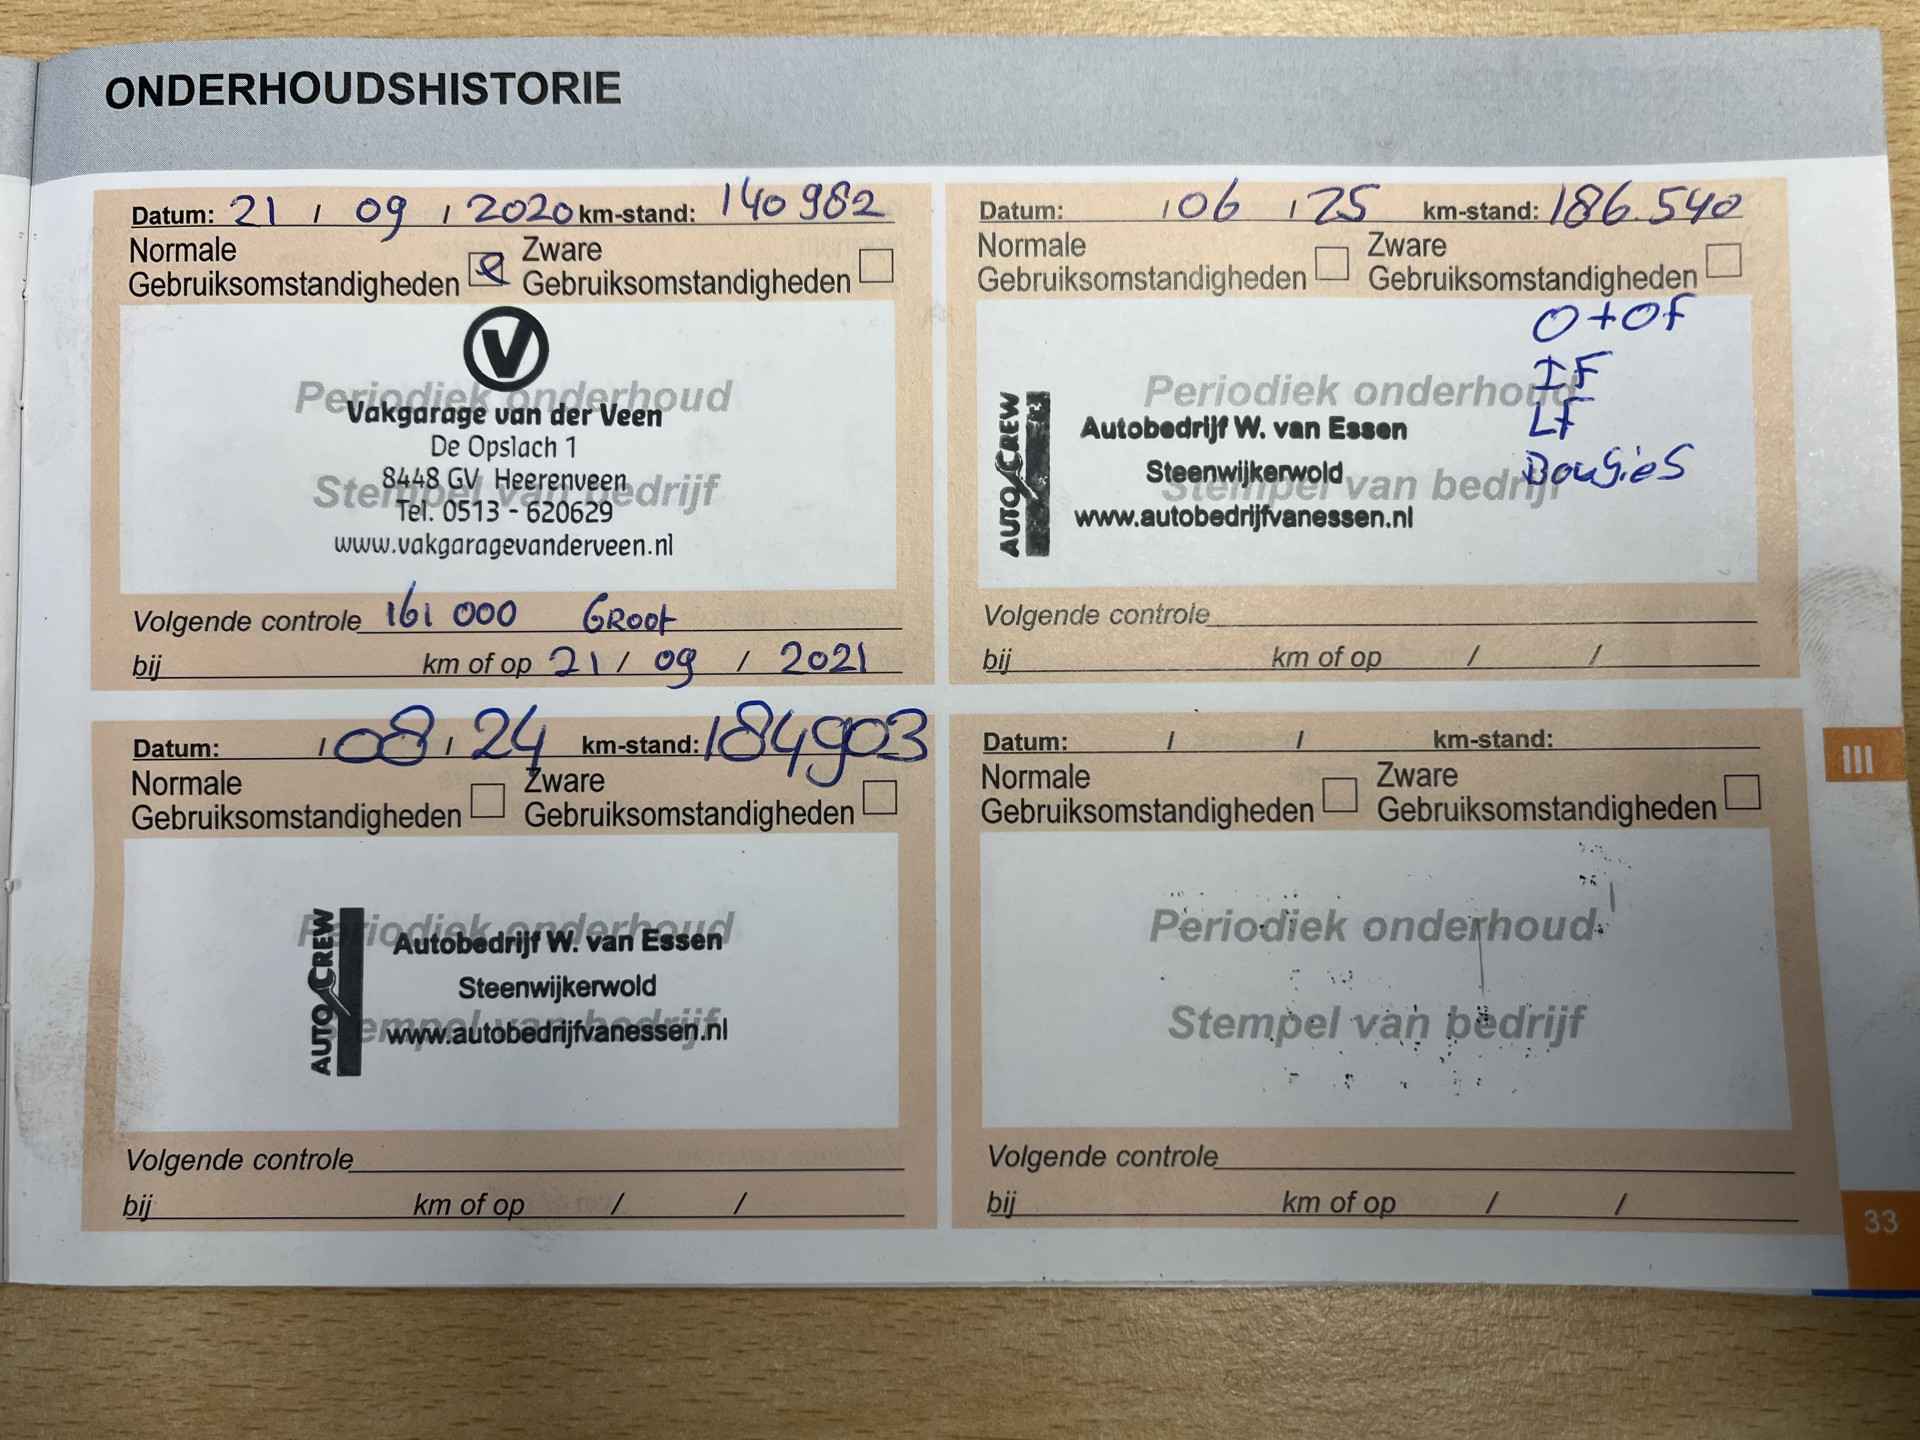 ONDERHOUDSHISTORIE
Datum: 21 / 09 / 2020 km-stand: 140982
Normale Zware
Gebruiksomstandigheden Gebruiksomstandigheden
Periodiek onderhoud
Vakgarage van der Veen
De Opslach 1
8448 GV Heerenveen
Stempel van bedrijf
Tel. 0513 - 620629
www.vakgaragevanderveen.nl
Volgende controle 161 000 GRoot
bij km of op 21 / 09 / 2021
Datum: / 06 / 25 km-stand: 186.540
Normale Zware
Gebruiksomstandigheden Gebruiksomstandigheden
O+OF
IF
LF
BouGieS
Periodiek onderhoud
AUTO CREW
Autobedrijf W. van Essen
Steenwijkerwold
Stempel van bedrijf
www.autobedrijfvanessen.nl
Volgende controle
bij km of op / /
Datum: / 08 / 24 km-stand: 184903
Normale Zware
Gebruiksomstandigheden Gebruiksomstandigheden
Periodiek onderhoud
AUTO CREW
Autobedrijf W. van Essen
Steenwijkerwold
Stempel van bedrijf
www.autobedrijfvanessen.nl
Volgende controle
bij km of op / /
Datum: / / km-stand:
Normale Zware
Gebruiksomstandigheden Gebruiksomstandigheden
Periodiek onderhoud
Stempel van bedrijf
Volgende controle
bij km of op / /
III
33